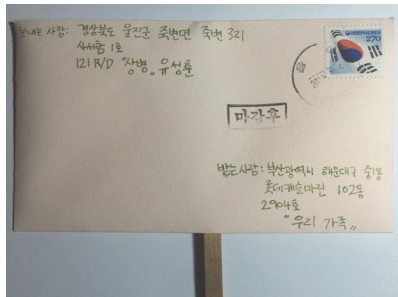 보내는 사람: 경상북도 울진군 죽변면 죽변3리
사서함 1호
121 R/D "상병" 유성훈
대한민국 KOREA
270
마감후
받는사람: 부산광역시 해운대구 중1동
롯데캐슬마린 102동
2904호
"우리 가족"